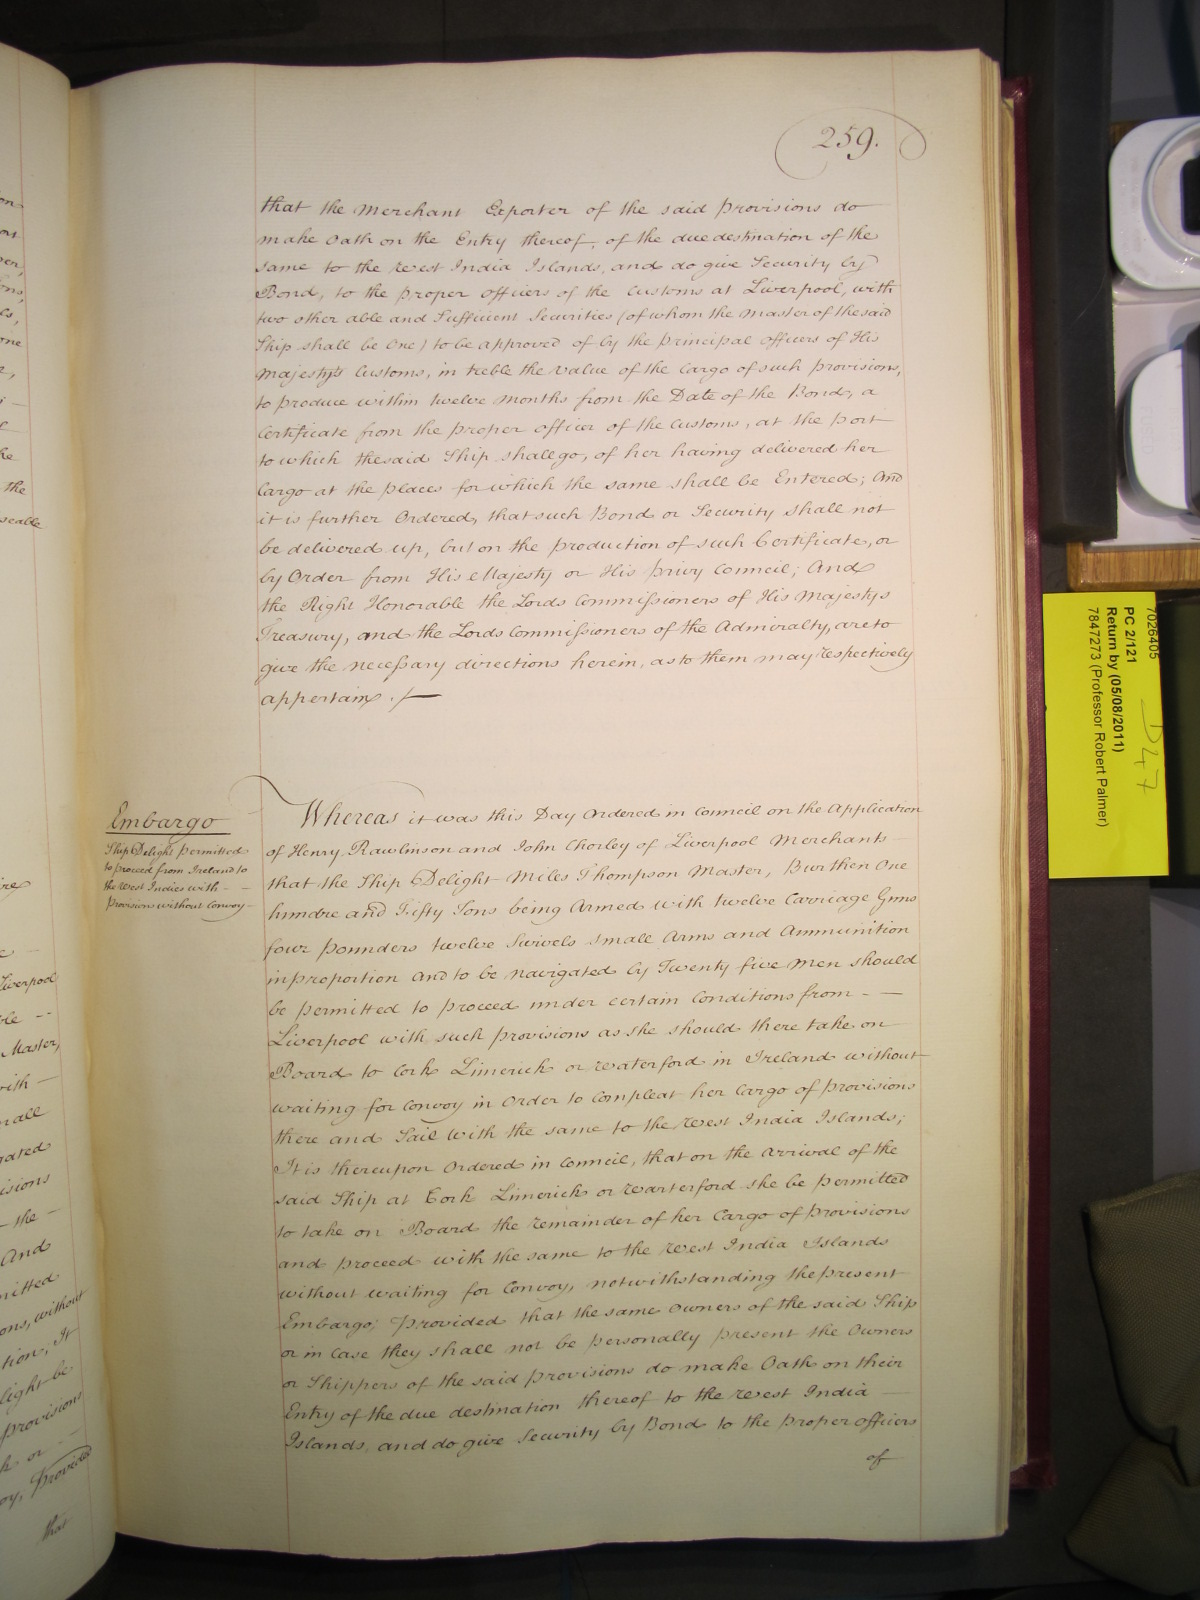 259.
that the Merchant Exporter of the said Provisions do
make Oath on the Entry thereof, of the due destination of the
same to the West India Islands, and do give Security by
Bond, to the proper officers of the Customs at Liverpool, with
two other able and Sufficient Securities (of whom the Master of the said
Ship shall be One) to be approved of by the principal officers of His
Majesty's Customs, in treble the value of the Cargo of such provisions,
to produce within twelve months from the Date of the Bond, a
Certificate from the proper officer of the Customs, at the Port
to which the said Ship shall go, of her having delivered her
Cargo at the places for which the same shall be Entered; And
it is further Ordered, that such Bond or Security shall not
be delivered up, but on the production of such Certificate, or
by Order from His Majesty or His Privy Council; And
the Right Honorable the Lords Commissioners of His Majestys
Treasury, and the Lords Commissioners of the Admiralty, are to
give the necessary directions herein, as to them may respectively
appertain.
Embargo
Ship Delight permitted
to proceed from Ireland to
the West Indies with - -
Provisions without Convoy -
Whereas it was this Day Ordered in Council on the Application
of Henry Rawlinson and John Chorley of Liverpool Merchants
that the Ship Delight Miles Thompson Master, Burthen One
hundre and Fifty Tons being Armed with twelve Carriage Guns
four pounders twelve Swivels Small Arms and Ammunition
in proportion and to be navigated by Twenty five Men should
be permitted to proceed under certain Conditions from - -
Liverpool with such provisions as she should there take on
Board to Cork Limerick or Waterford in Ireland without
waiting for Convoy in Order to Compleat her Cargo of Provisions
there and Sail with the same to the West India Islands;
It is thereupon Ordered in Council, that on the arrival of the
said Ship at Cork Limerick or Warterford she be permitted
to take on Board the remainder of her Cargo of Provisions
and proceed with the same to the West India Islands
without waiting for Convoy, notwithstanding the present
Embargo; Provided that the same Owners of the said Ship
or in Case they shall not be personally present the Owners
or Shippers of the said provisions do make Oath on their
Entry of the due destination thereof to the West India
Islands, and do give Security by Bond to the proper officers
of
7026405
PC 2/121
Return by (05/08/2011)
7847273 (Professor Robert Palmer)
D47
the
Liverpool
Master,
with -
- the -
And
tion, It
provisions
Provided
that